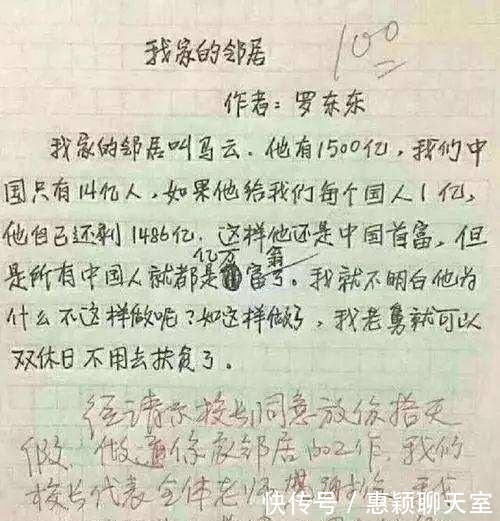 我家的邻居
100
作者：罗东东
我家的邻居叫马云．他有1500亿，我们中
国只有14亿人，如果他给我们每个国人1亿，
他自己还剩1486亿．这样他还是中国首富，但
是所有中国人就都是亿万富翁了。我就不明白他为
什么不这样做呢？如这样做了，我老舅就可以
双休日不用去扶贫了。
经请示校长同意放你搭天
假，做通你家邻居的工作，我们
校长代表全体老师
快传号／惠颖聊天室